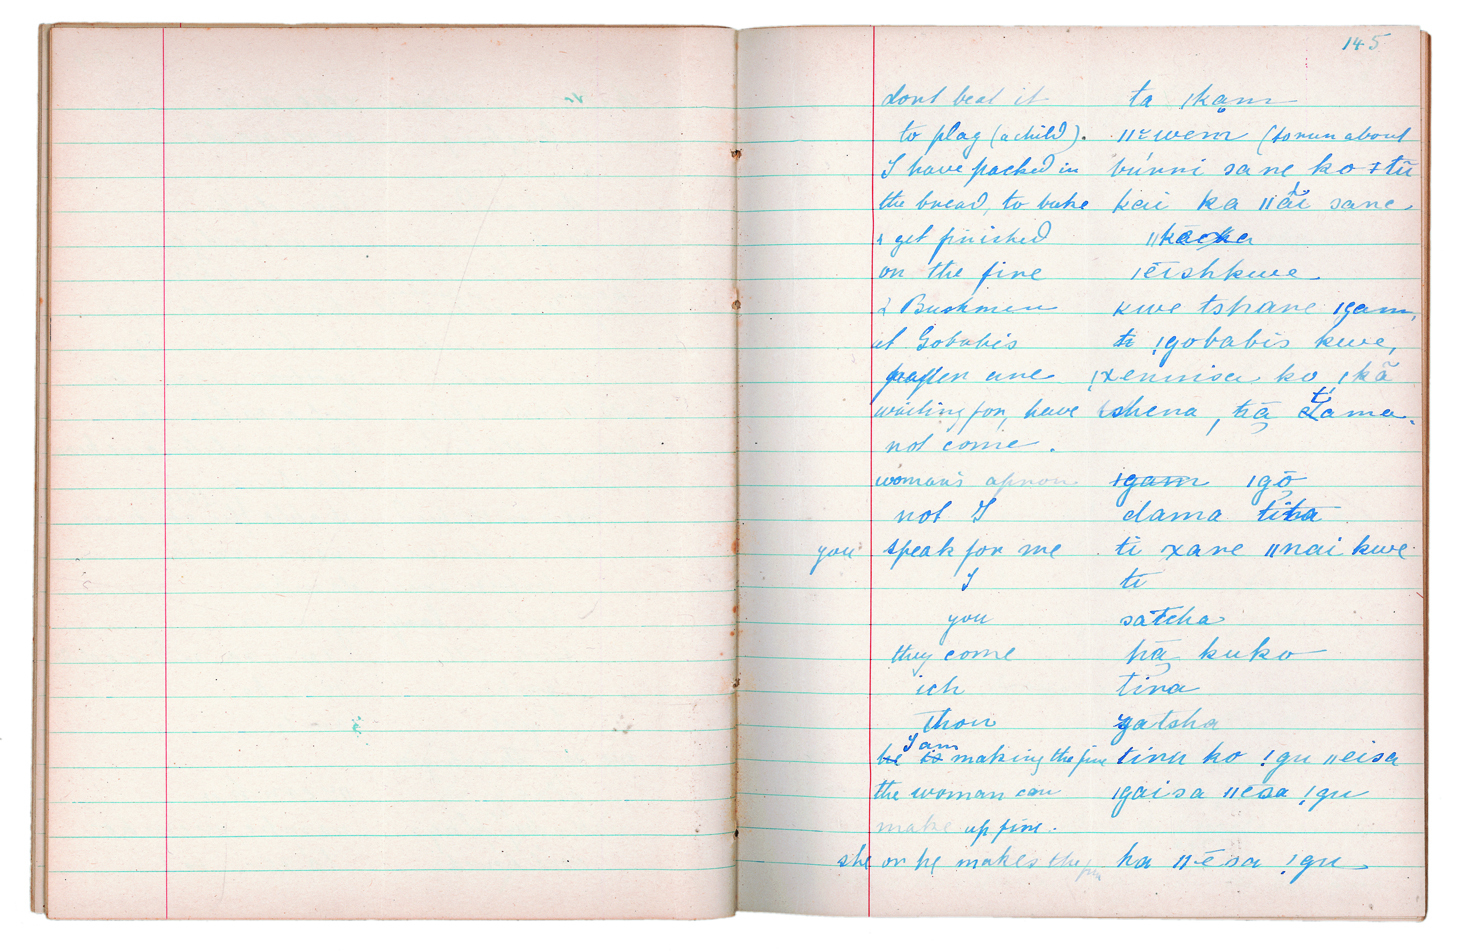 145
dont beat it ta ǀkąm
to play (a child). ǁžwem (to run about
I have packed in búnni sane ko ǂtū
the bread, to bake kai ka ǁãi sane
& get finished
on the fire ǀēishkwe
2 Bushmen kwe tshane ǀgam,
at Gobabis ti ǃgobabis kwe,
are ǃxennisa ko ǀkã
waiting for, have shena, hā tama.
not come.
woman's apron ǀgam ǀgō
not I dama
you speak for me ti xare ǁnai kwe
I ti
you satcha
they come hā kuko
ich tira
Thou gatsha
he I am is making the fire tinu ko ǃgu ǁeisa
the woman can ǀgaisa ǁēsa ǃgu
make up fire.
she or he makes the fire ha ǁēsa ǃgu